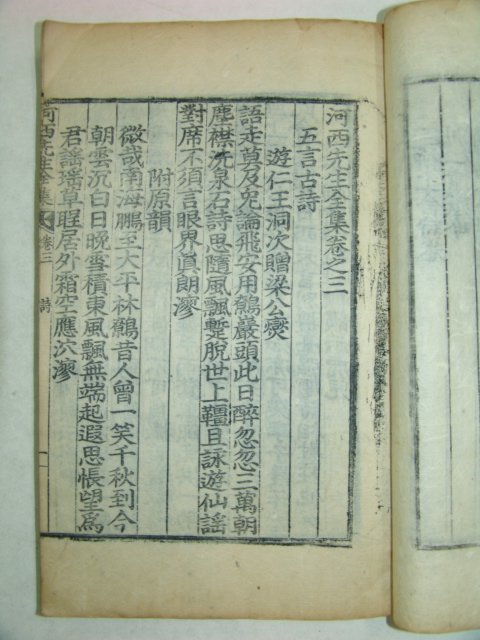 河西先生全集卷之三
五言古詩
遊仁王洞次贈梁公燮
語走莫及兔論飛安用鷦巖頭此日醉忽忽三萬朝
塵襟洗泉石詩思隨風飄蹔脫世上韁且詠遊仙謠
對席不須言眼界眞朗廖
附原韻
微哉南海鵬至大平林鷦昔人曾一笑千秋到今
朝雲沉白日晚雪積東風飄無端起遐思悵望爲
君謠瑤草眶居外霜空應泬廖
河西先生全集 卷三 詩 一